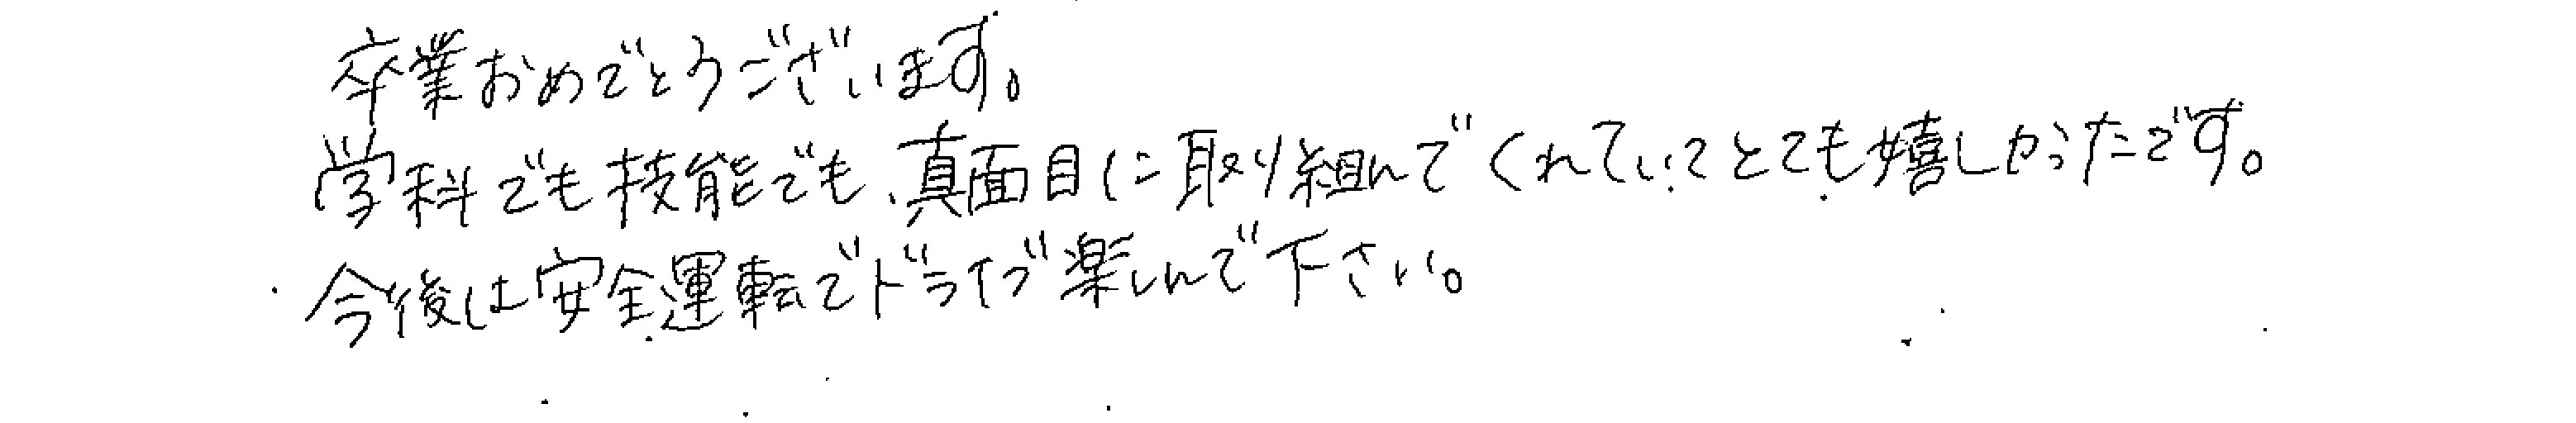 卒業おめでとうございます。
学科でも技能でも、真面目に取り組んでくれていてとても嬉しかったです。
今後は安全運転でドライブ楽しんで下さい。